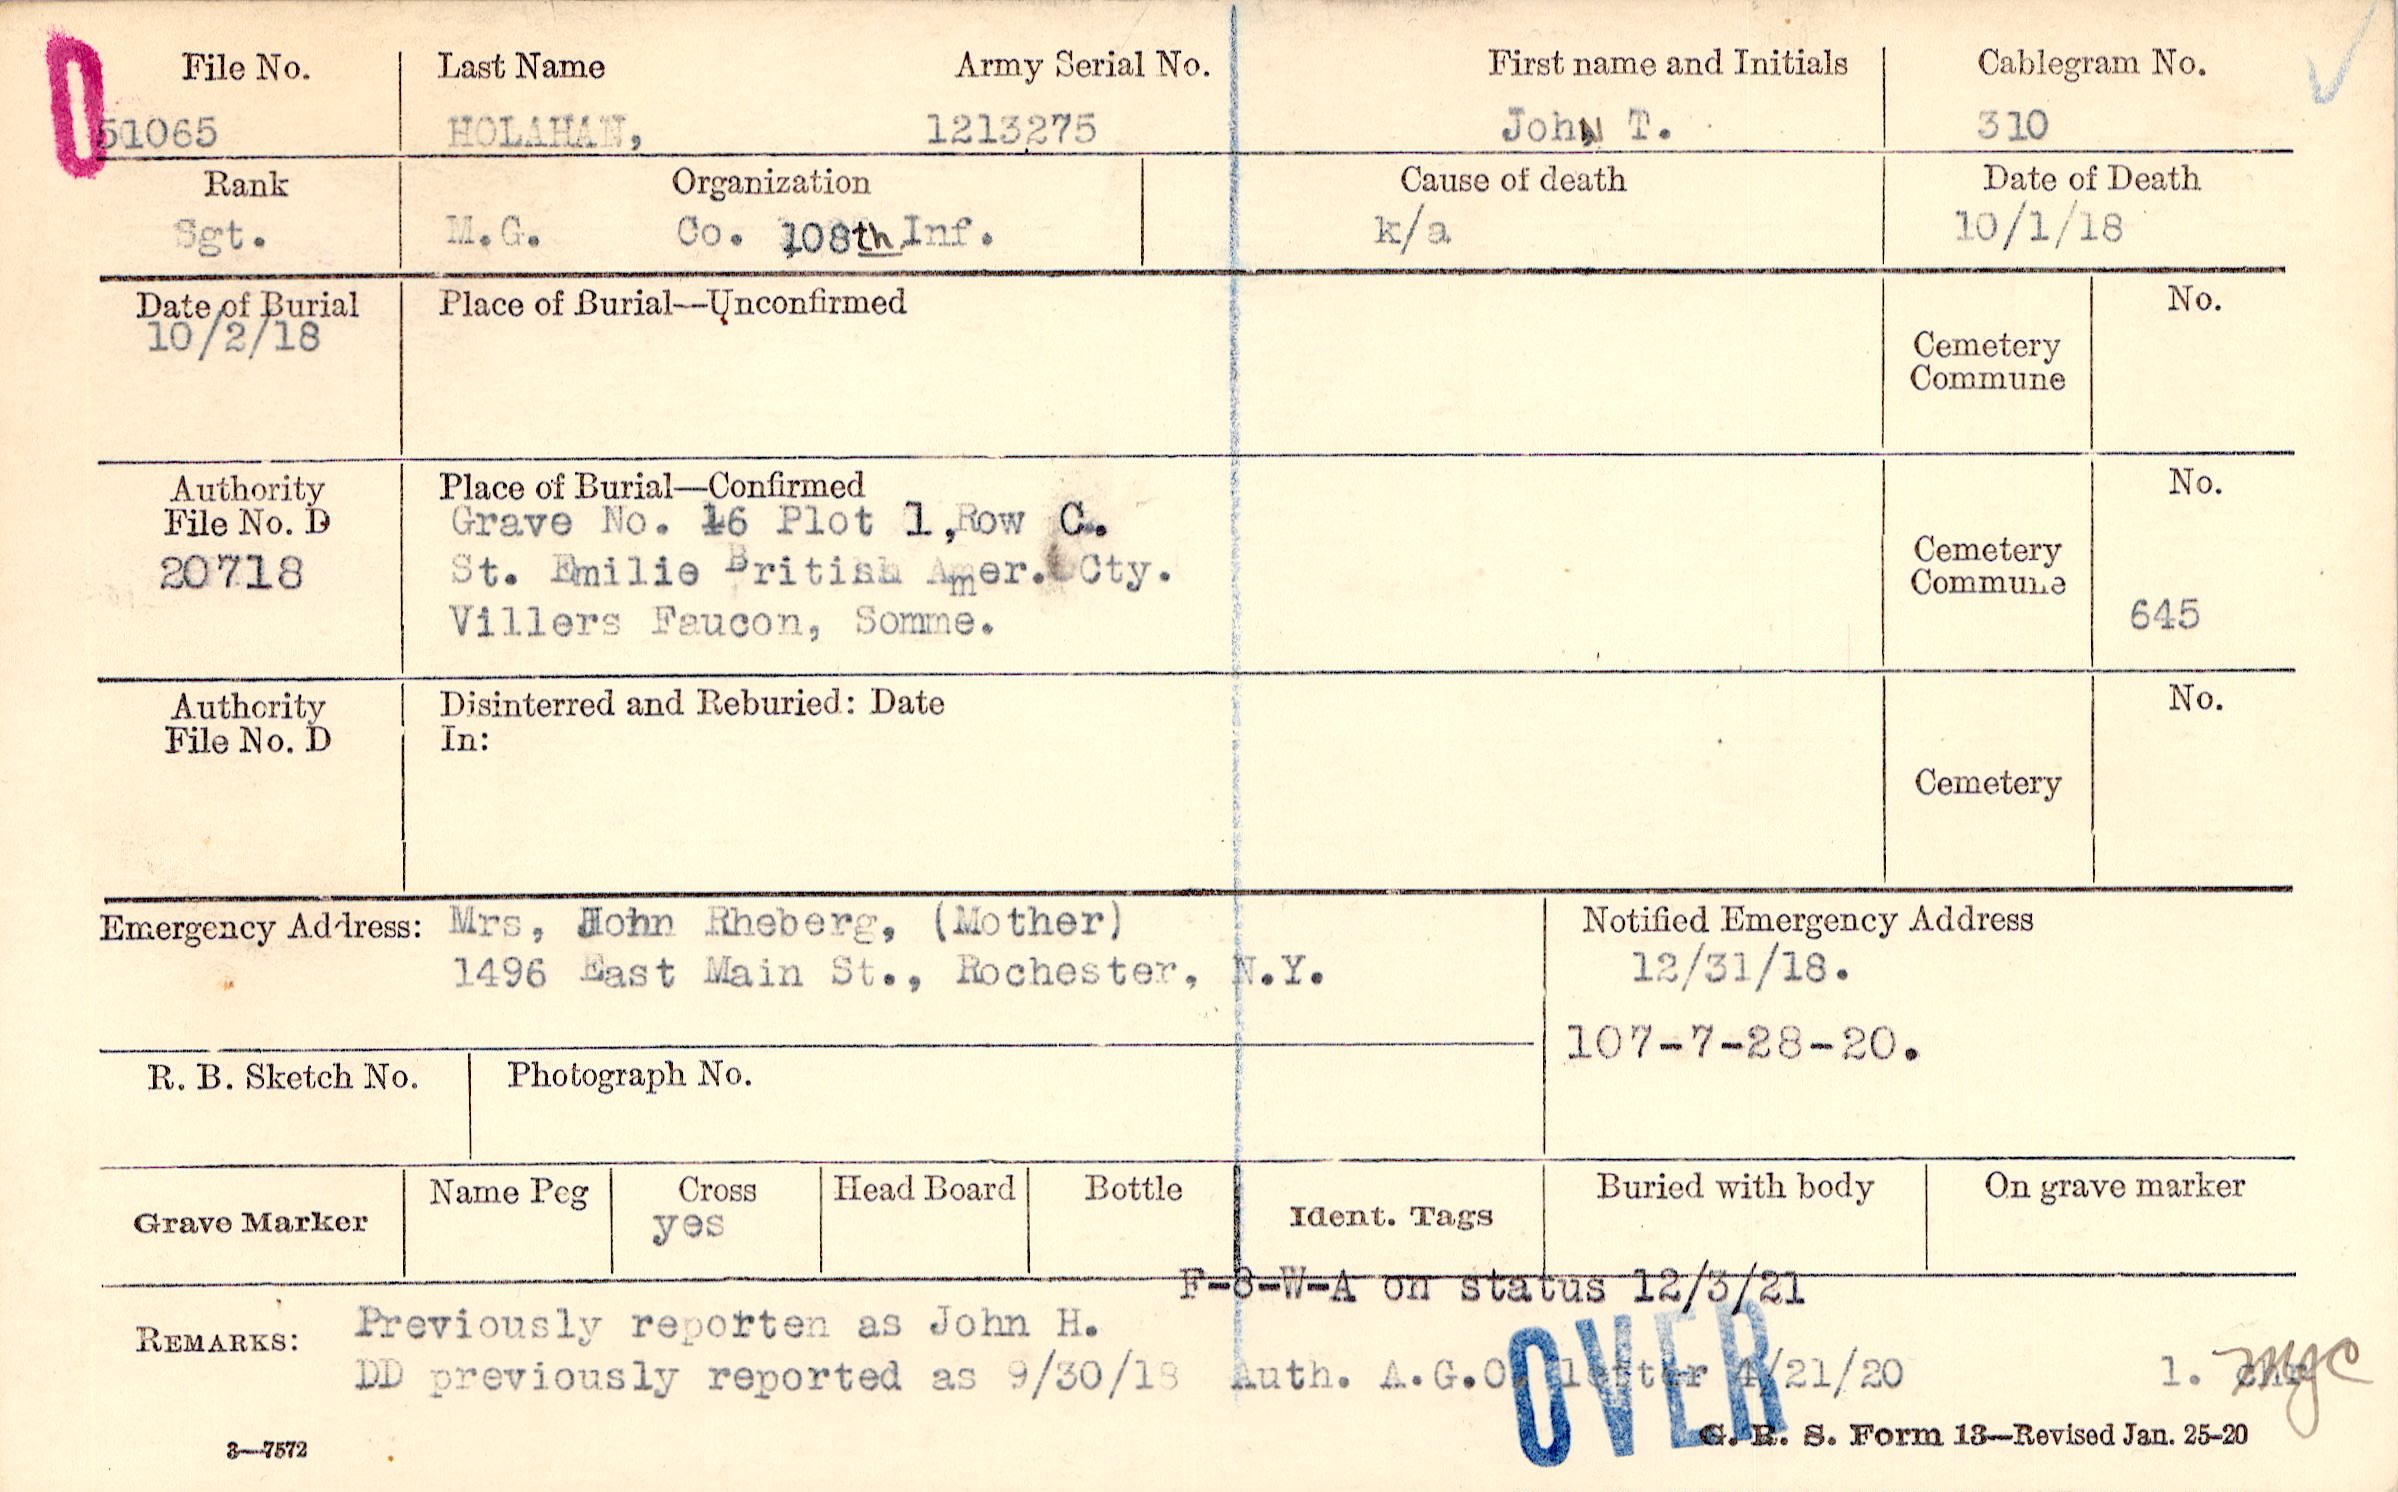 File No. Last Name Army Serial No. First name and Initials Cablegram No.
51065 HOLAHAN, 1213275 John T. 310
Rank Organization Cause of death Date of Death
Sgt. M.G. Co. 108th Inf. k/a 10/1/18
Date of Burial Place of Burial—Unconfirmed No.
10/2/18
Cemetery
Commune
Authority Place of Burial—Confirmed No.
File No. D Grave No. 16 Plot 1, Row C.
20718 St. Emilie British Amer. Cty. Cemetery
Commune
Villers Faucon, Somme. 645
Authority Disinterred and Reburied: Date No.
File No. D In:
Cemetery
Emergency Address: Mrs, John Rheberg, (Mother) Notified Emergency Address
1496 East Main St., Rochester, N.Y. 12/31/18.
107-7-28-20.
R. B. Sketch No. Photograph No.
Grave Marker Name Peg Cross Head Board Bottle Ident. Tags Buried with body On grave marker
yes
F-8-W-A on status 12/3/21
REMARKS: Previously reporten as John H.
DD previously reported as 9/30/18 Auth. A.G.O. letter 4/21/20 1.
OVER
3—7572 G. R. S. Form 13—Revised Jan. 25-20